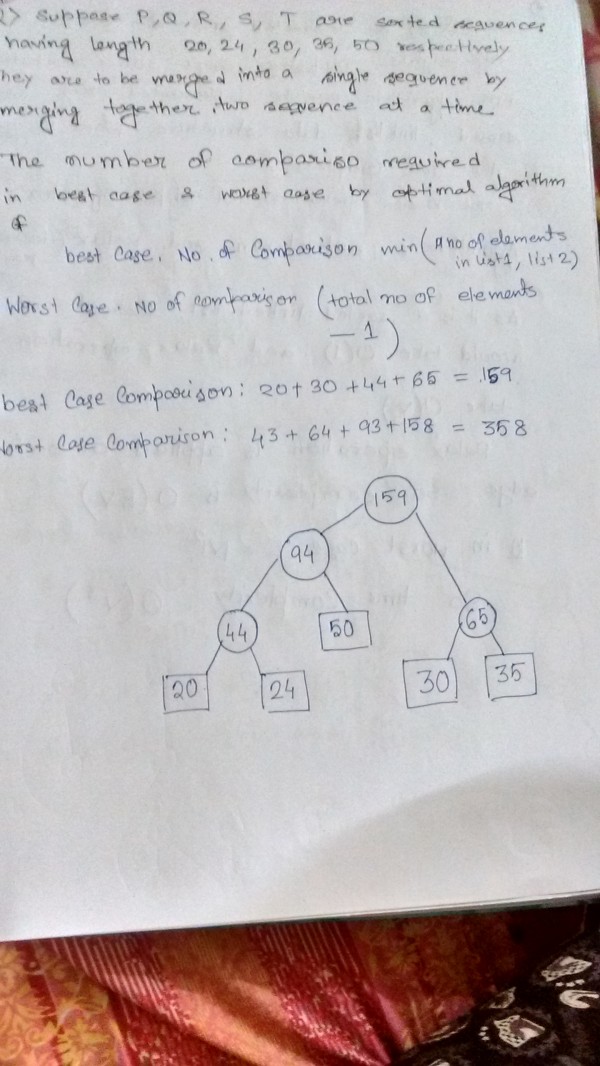 > Suppose P, Q, R, S, T are sorted sequences
having length 20, 24, 30, 35, 50 respectively
hey are to be merged into a single sequence by
merging together two sequence at a time
The number of compariso required
in best case & worst case by optimal algorithm
of
best case. No. of Comparison min( no of elements
in list1, list2)
Worst Case. No of comparison (total no of elements
— 1)
best Case Comparison: 20+30+44+65 = 159
orst Case Comparison: 43+64+93+158 = 358
159
94
44
50
65
20
24
30
35